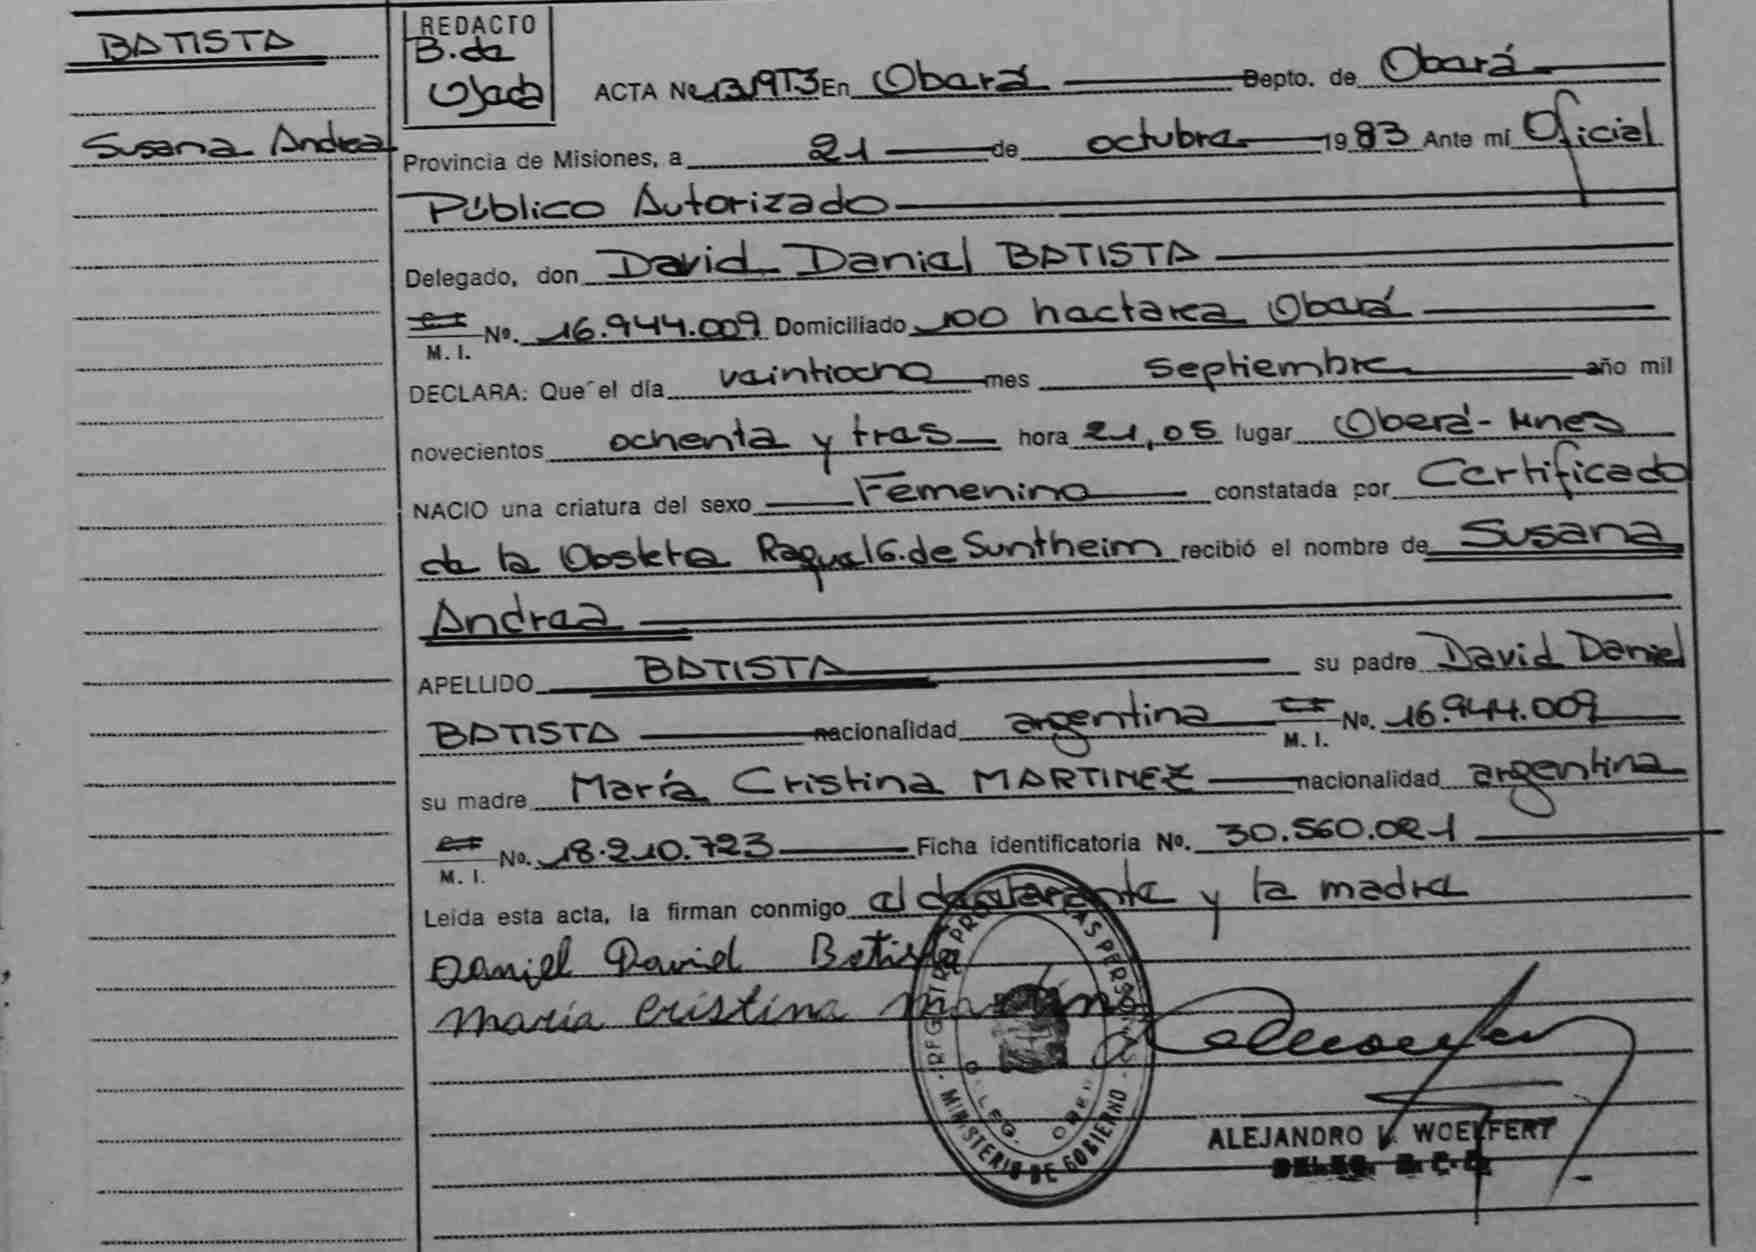 BATISTA
Susana Andrea
REDACTO
B. de
Ojeda
ACTA Nº 1319T3 En Oberá Depto. de Oberá
Provincia de Misiones, a 21 de octubre 1983 Ante mí Oficial
Público Autorizado
Delegado, don David Daniel BATISTA
M. I. Nº. 16.944.009 Domiciliado 100 hectarea Oberá
DECLARA: Que el día veintiocho mes septiembre año mil
novecientos ochenta y tres hora 21,05 lugar Oberá - Mnes
NACIO una criatura del sexo Femenino constatada por Certificado
de la Obstetra Raquel G. de Suntheim recibió el nombre de Susana
Andrea
APELLIDO BATISTA su padre David Daniel
BATISTA nacionalidad argentina M. I. No. 16.944.009
su madre María Cristina MARTINEZ nacionalidad argentina
M. I. No. 18.210.723 Ficha identificatoria Nº. 30.560.021
Leída esta acta, la firman conmigo el declarante y la madre
Daniel David Batista
maria cristina
MINISTERIO DE GOBIERNO
ALEJANDRO WOELFERT